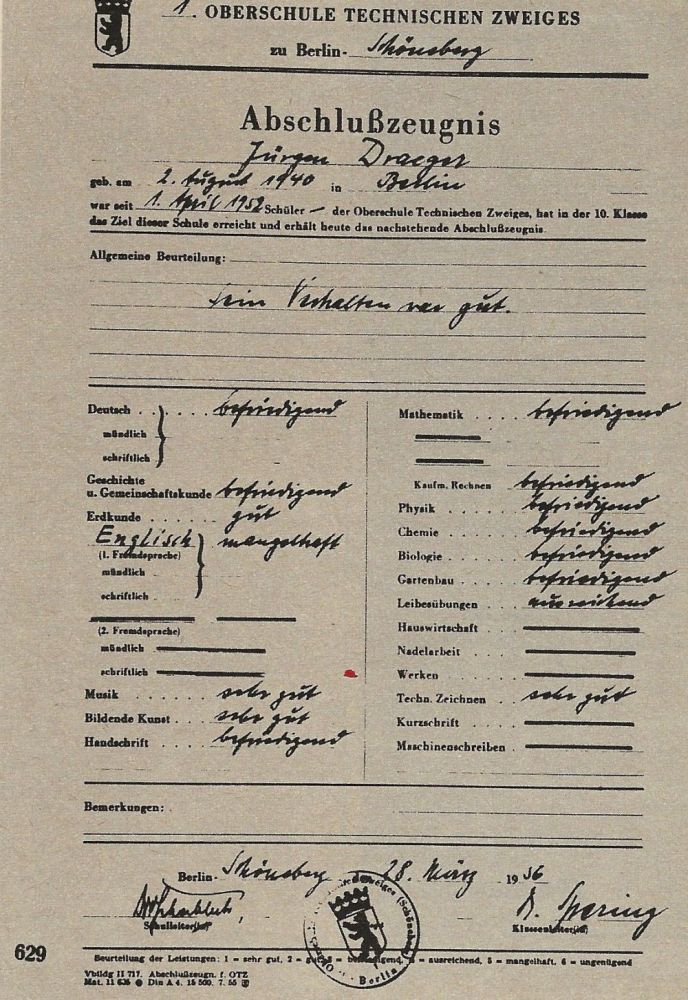 1. OBERSCHULE TECHNISCHEN ZWEIGES
zu Berlin- Schöneberg
Abschlußzeugnis
Jürgen Draeger
geb. am 2. August 1940 in Berlin
war seit 1. April 1952 Schüler – der Oberschule Technischen Zweiges, hat in der 10. Klasse
das Ziel dieser Schule erreicht und erhält heute das nachstehende Abschlußzeugnis.
Allgemeine Beurteilung:
Sein Verhalten war gut.
Deutsch . . . . . . befriedigend
mündlich
schriftlich
Geschichte
u. Gemeinschaftskunde befriedigend
Erdkunde . . . . . gut
Englisch mangelhaft
(1. Fremdsprache)
mündlich
schriftlich
(2. Fremdsprache)
mündlich
schriftlich
Musik . . . . . . sehr gut
Bildende Kunst . . . sehr gut
Handschrift . . . . befriedigend
Mathematik . . . . befriedigend
Kaufm. Rechnen befriedigend
Physik . . . . . befriedigend
Chemie . . . . . befriedigend
Biologie . . . . . befriedigend
Gartenbau . . . . befriedigend
Leibesübungen . . . ausreichend
Hauswirtschaft . . .
Nadelarbeit . . . .
Werken . . . . .
Techn. Zeichnen . . . sehr gut
Kurzschrift . . . .
Maschinenschreiben .
Bemerkungen:
Berlin- Schöneberg 28. März 1956
Schulleiter(in)
R. Spering
Klassenleiter(in)
Berlin
629
Beurteilung der Leistungen: 1 = sehr gut, 2 = gut, 3 = befriedigend, 4 = ausreichend, 5 = mangelhaft, 6 = ungenügend
Vbildg II 717. Abschlußzeugn. f. OTZ
Mat. 11 635 Din A 4. 15 500. 7. 55